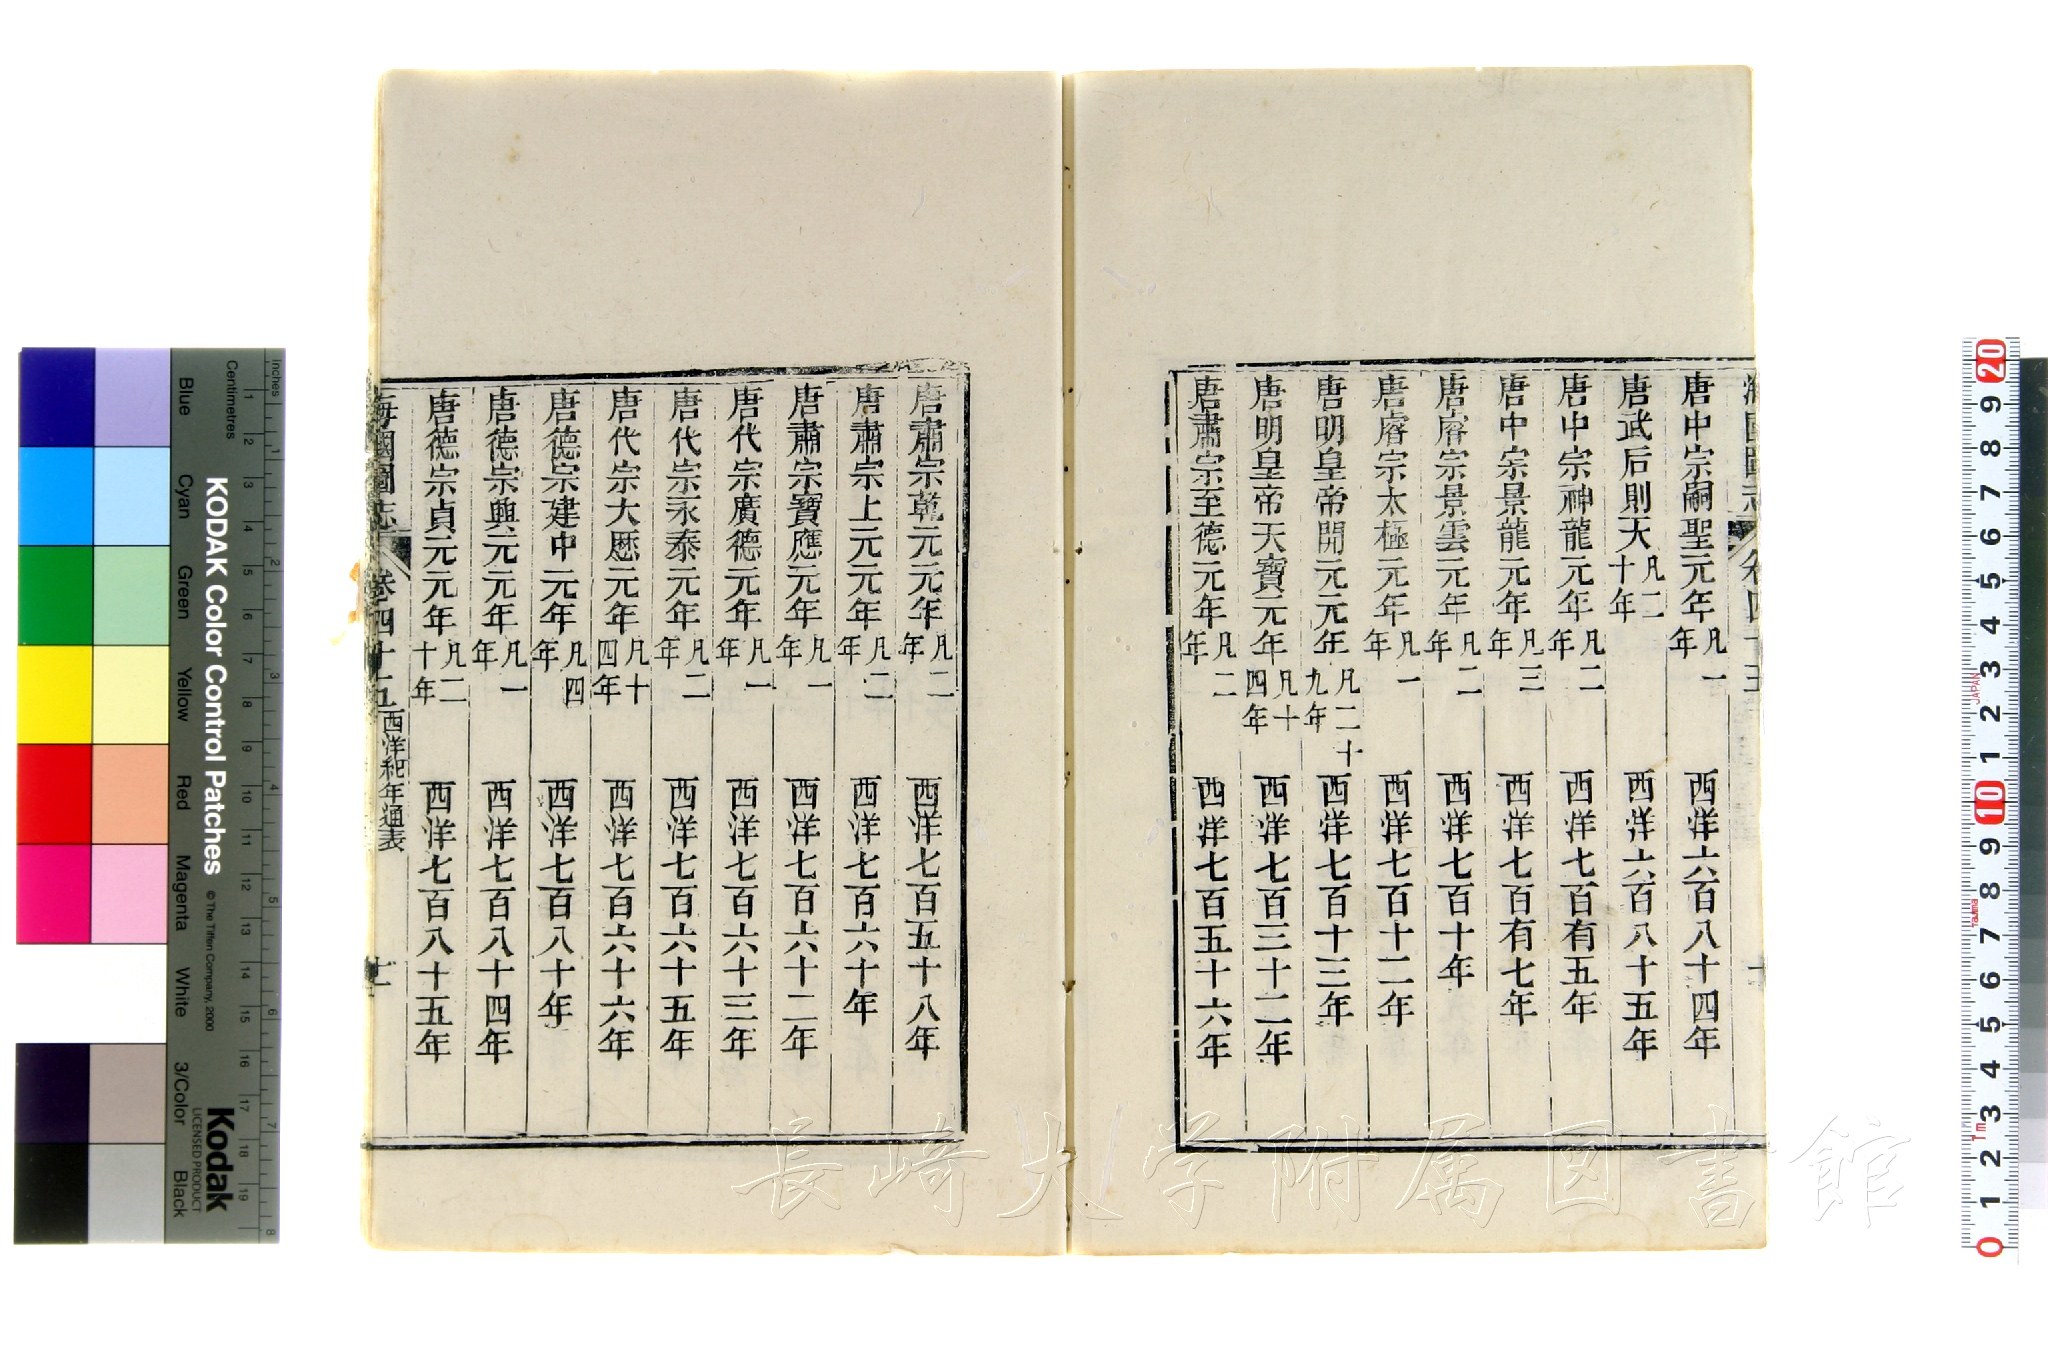 海國圖志 卷四十五 十
唐中宗嗣聖元年凡一年 西洋六百八十四年
唐武后則天凡二十年 西洋六百八十五年
唐中宗神龍元年凡二年 西洋七百有五年
唐中宗景龍元年凡三年 西洋七百有七年
唐睿宗景雲元年凡二年 西洋七百十年
唐睿宗太極元年凡一年 西洋七百十二年
唐明皇帝開元元年凡二十九年 西洋七百十三年
唐明皇帝天寶元年凡十四年 西洋七百三十二年
唐肅宗至德元年凡二年 西洋七百五十六年
唐肅宗乾元元年凡二年 西洋七百五十八年
唐肅宗上元元年凡二年 西洋七百六十年
唐肅宗寶應元年凡一年 西洋七百六十二年
唐代宗廣德元年凡一年 西洋七百六十三年
唐代宗永泰元年凡二年 西洋七百六十五年
唐代宗大厯元年凡十四年 西洋七百六十六年
唐德宗建中元年凡四年 西洋七百八十年
唐德宗興元元年凡一年 西洋七百八十四年
唐德宗貞元元年凡二十年 西洋七百八十五年
海國圖志 卷四十五 西洋紀年通表 十一
長崎大学附属図書館
KODAK Color Control Patches © The Tiffen Company, 2000
Kodak
LICENSED PRODUCT
Inches
Centimetres
Blue Cyan Green Yellow Red Magenta White 3/Color Black
1 2 3 4 5 6 7 8
1 2 3 4 5 6 7 8 9 10 11 12 13 14 15 16 17 18 19
20 9 8 7 6 5 4 3 2 1 10 9 8 7 6 5 4 3 2 1 0
JAPAN